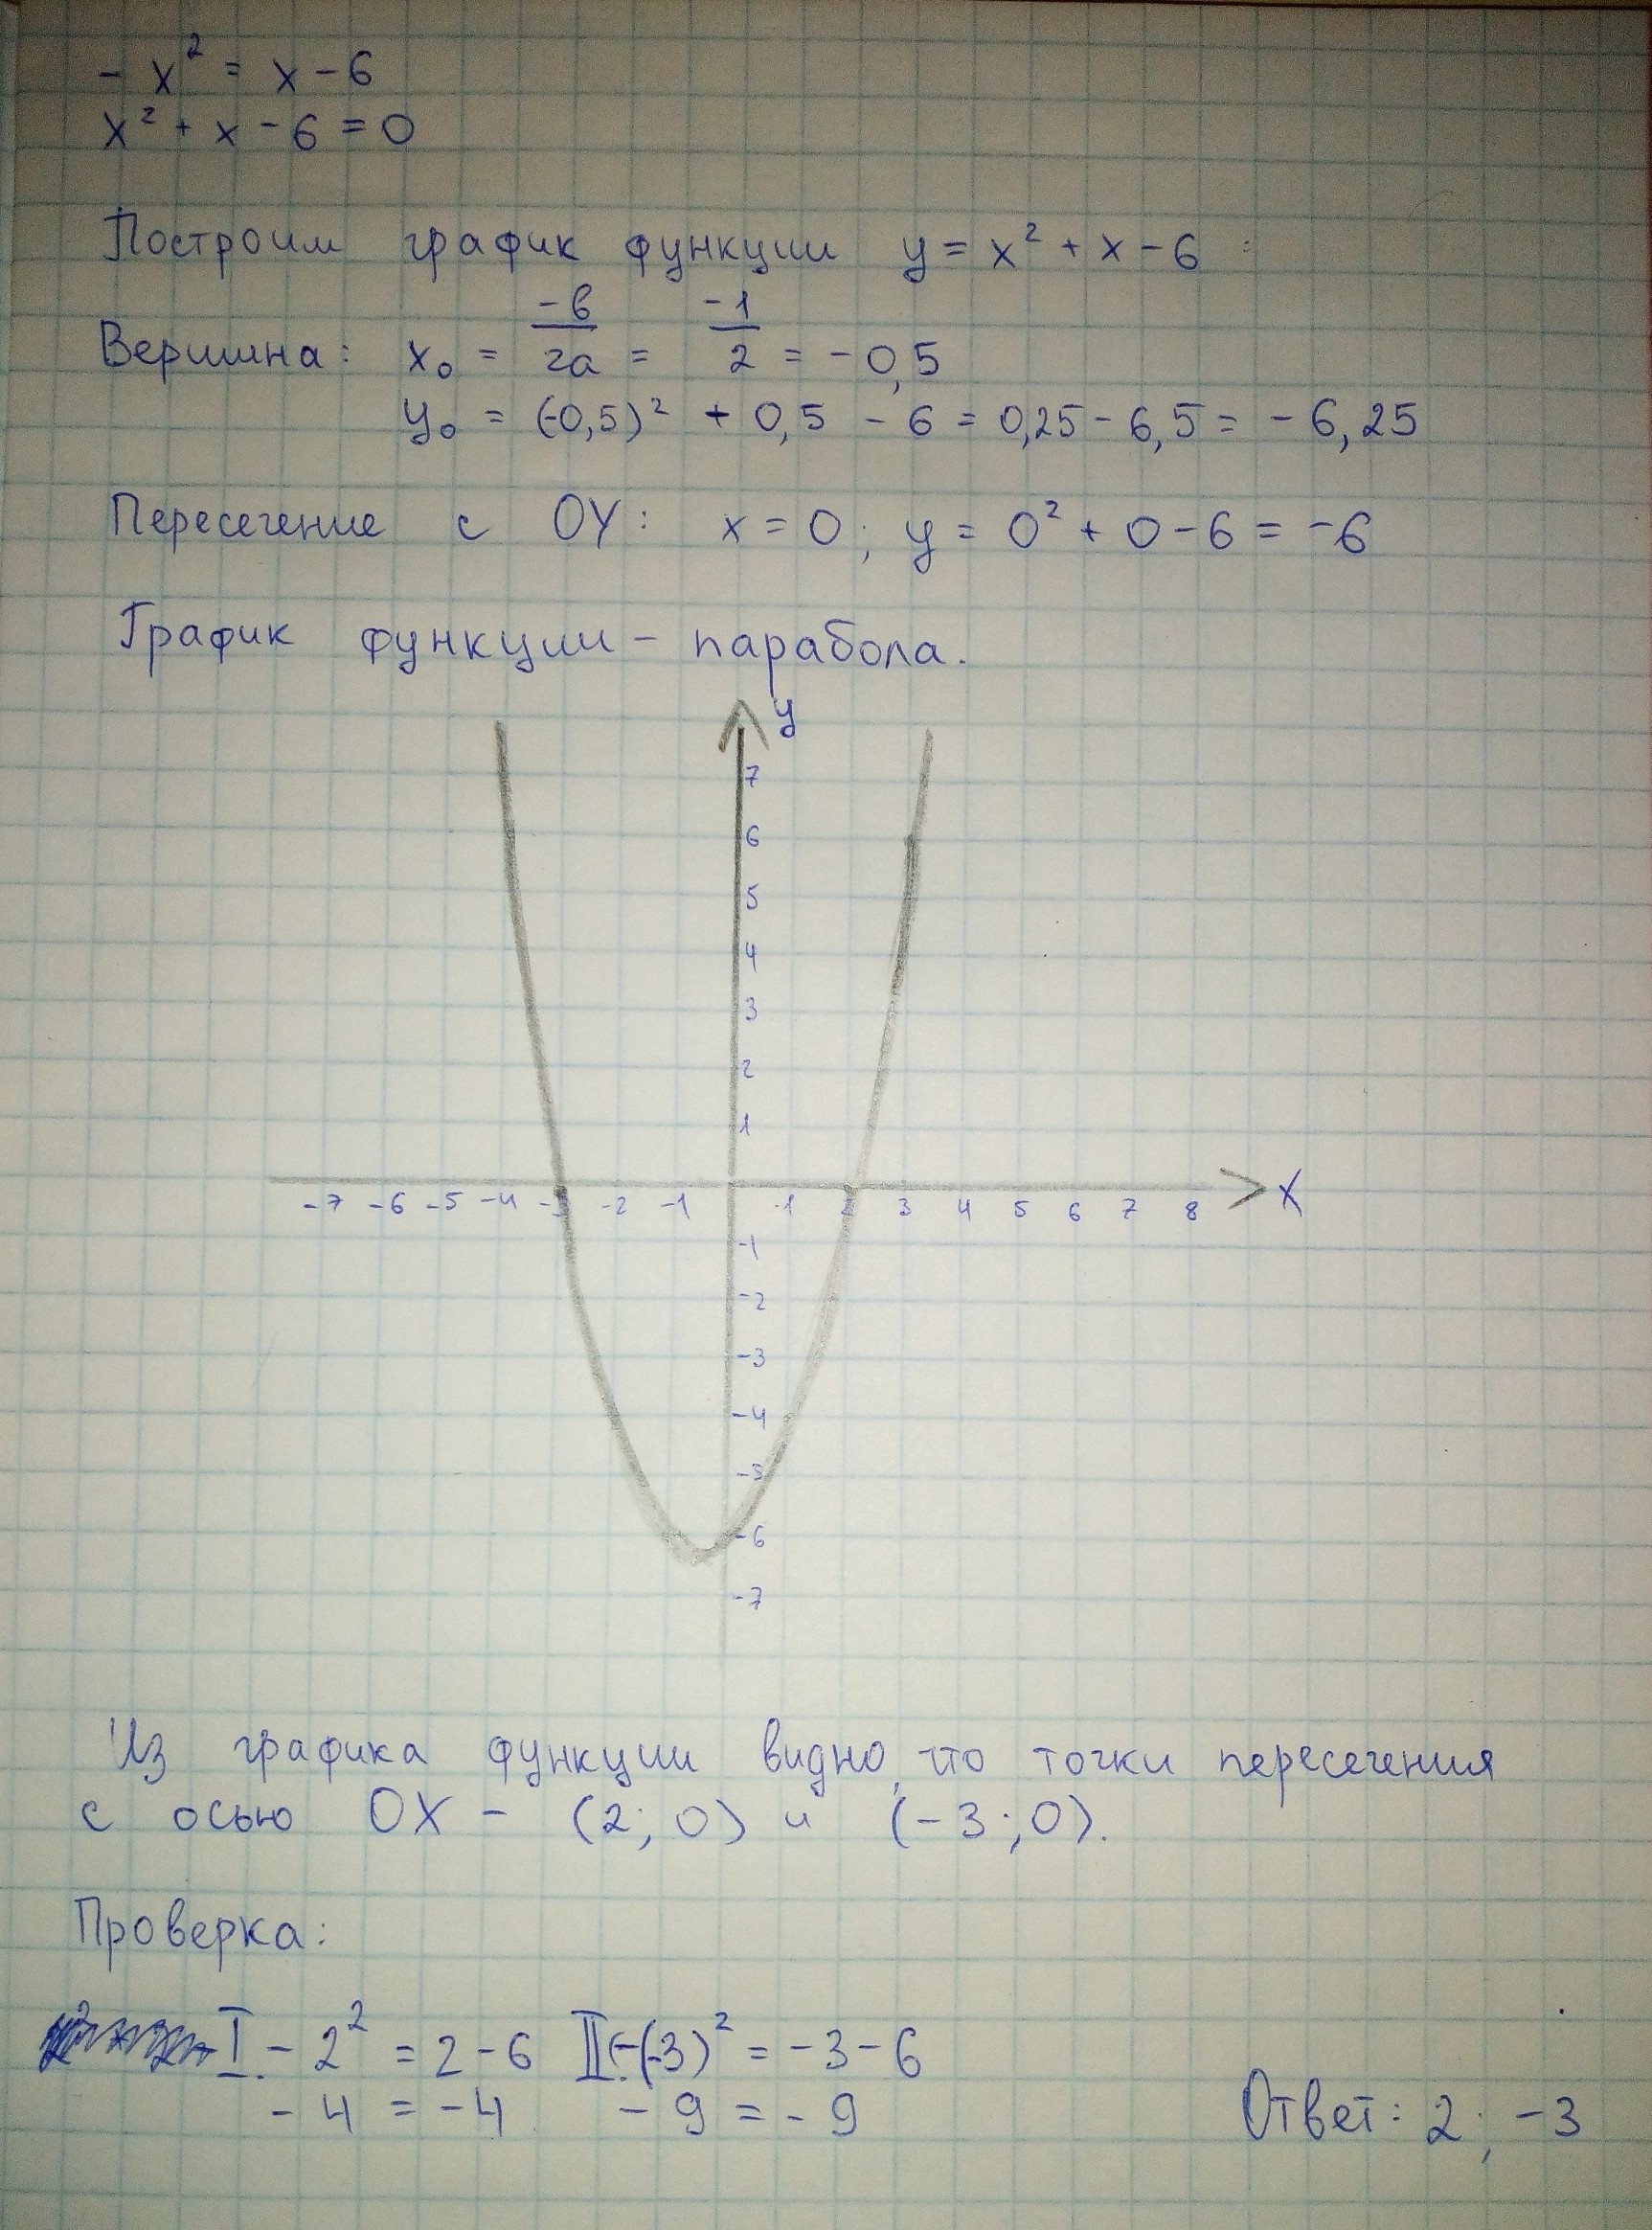 - x² = x - 6
x² + x - 6 = 0
Построим график функции y = x² + x - 6 :
Вершина: x₀ = -в/2a = -1/2 = -0,5
y₀ = (-0,5)² + 0,5 - 6 = 0,25 - 6,5 = -6,25
Пересечение с OY: x = 0; y = 0² + 0 - 6 = -6
График функции - парабола.
y
7
6
5
4
3
2
1
-7 -6 -5 -4 -3 -2 -1 1 2 3 4 5 6 7 8 X
-1
-2
-3
-4
-5
-6
-7
Из графика функции видно, что точки пересечения
с осью OX - (2; 0) и (-3; 0).
Проверка:
I. - 2² = 2 - 6 II. -(-3)² = -3 - 6
- 4 = - 4 - 9 = - 9
Ответ: 2; -3